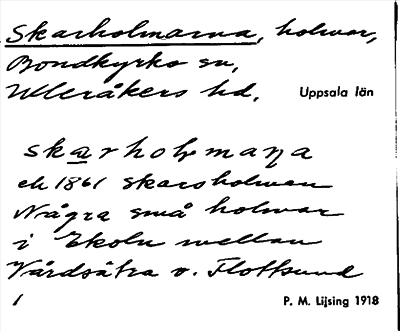 Skarholmarna, holmar,
Bondkyrko sn,
Ulleråkers hd. Uppsala län
skarholmaṇa
ek 1861 Skarsholman
Några små holmar
i Ekoln mellan
Vårdsätra o. Flottsund
1 P. M. Lijsing 1918